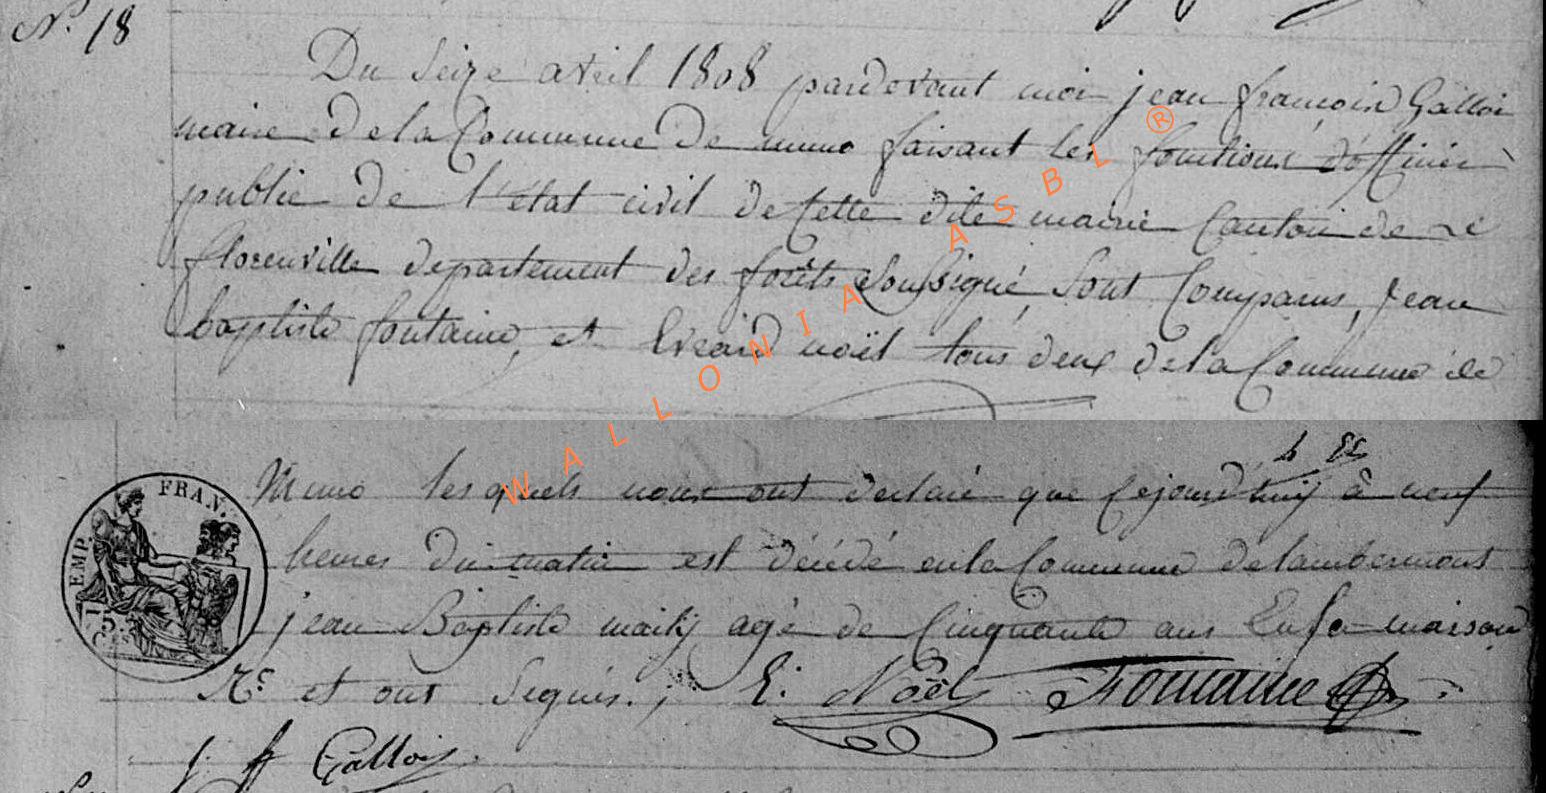 N.° 18
Du Seize avril 1808 pardevant moi jean françois Galloi
maire de la Commune de muno faisant les fonctions d'officier
public de l'état civil de Cette dite mairie Canton de
florenville departement des forêts Soussigné, Sont Comparus, Jean
baptiste fontaine, et Evrard noël tous deux de la Commune de
Muno les quels nous ont declaré que Cejourd'huij à neuf
heures du matin est décédé en la Commune de lambermont
jean Baptiste mailij agé de Cinquante ans En sa maison
et ont Signés.; E: Noël Fontaine
J. f Gallois
EMP. FRAN.
WALLONIA ASBL ®